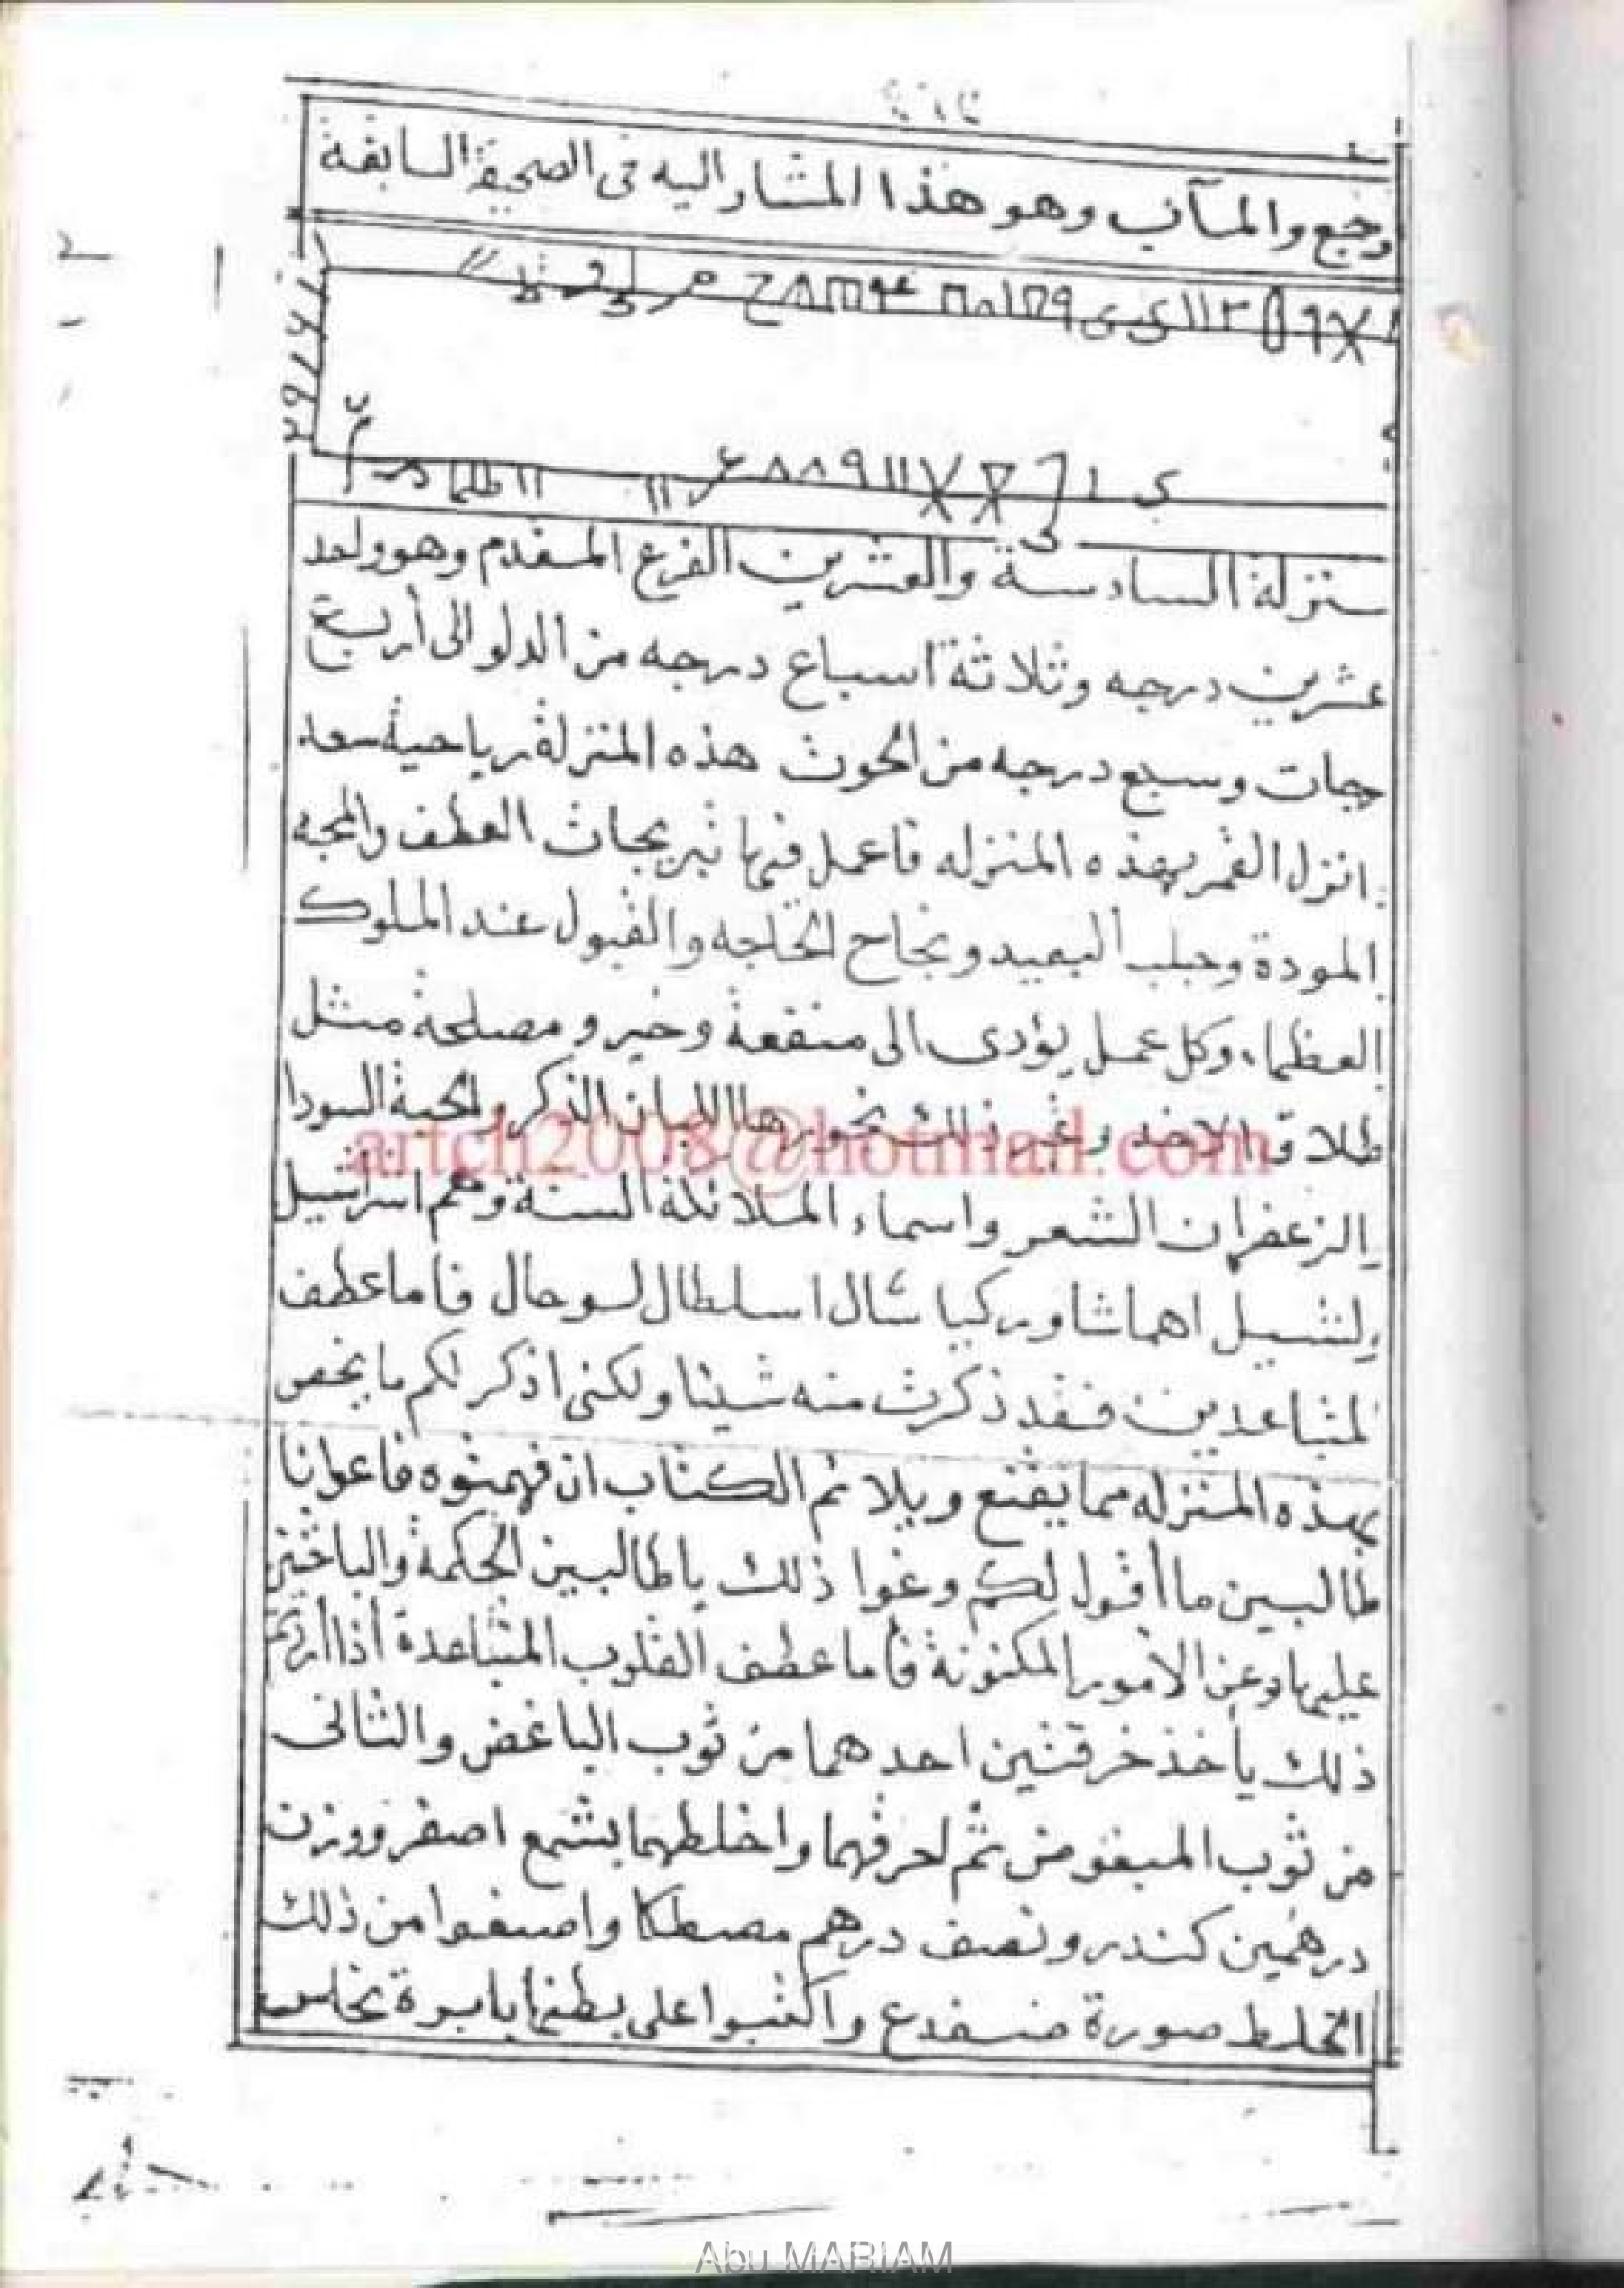 وجع والمآب وهو هذا المشار اليه فى الصحيفة السابقة
ستزلة السادسة والعشرين الفرع المقدم وهو واحد
عشرين درجه وثلاثة اسباع درجه من الدلو الى أربع
رجات وسبع درجه من الحوت هذه المنزلة رياحية سعد
انزل القمر بهذه المنزله فاعمل فيها نيريجات العطف والمحبه
المودة وجلب البعيد ونجاح الحاجه والقبول عند الملوك
العظماء وكل عمل يؤدى الى منفعة وخير ومصلحة مثل
طلاق الاخذ وغير ذلك بخورها اللبان الذكر والحبة السودا
الزعفران الشعر واسماء الملائكة الستة وهم
اهما شاور كيا شال اسلطال لوحال فاما عطف
لمتباعدين فقد ذكرت منه شيئا ولكنى اذكر لكم ما يخص
بهذه المنزله مما يقنع ويلائم الكتاب ان فهمتوه فاعوانا
طالبين ما أقول لكم وعوا ذلك يا طالبين الحكمة والباحثين
عليها وعن الامور المكنونة فأما عطف القلوب المتباعدة أذا أردتم
ذلك يأخذ خرقتين احدهما من ثوب الباغض والثانى
من ثوب المبغوض ثم احرقهما واخلطهما بشمع اصفر ووزن
درهمين كندر ونصف درهم مصطكا واصنعوا من ذلك
الخليط صورة ضفدع واكتبوا على بطنها بابرة نحاس
artch2008@hotmail.com
Abu MARIAM